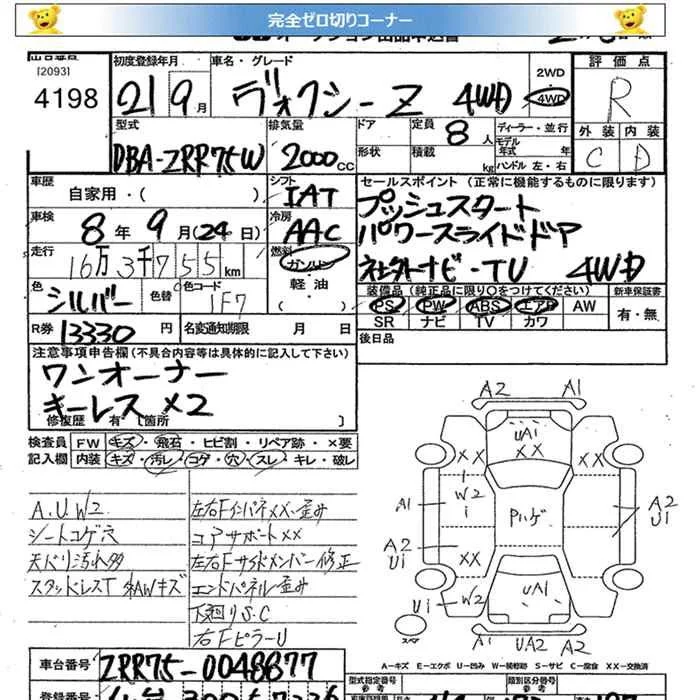 完全ゼロ切りコーナー
[2093]
4198
初度登録年月
21 9月
車名・グレード
ヴォクシーZ 4WD
2WD
4WD
評価点
R
外装 内装
C D
型式
DBA-ZRR75W
排気量
2000cc
ドア
形状
定員 8人
積載 kg
ディーラー・並行
モデル年式 年
ハンドル 左・右
車歴
自家用・( )
シフト
IAT
車検
8年9月(24日)
冷房
AAC
走行
16万3千755km
燃料
ガソリン
軽・油
( )
色
シルバー
色替
色コード
1F7
R券 13330円
名変通知期限 月 日
セールスポイント (正常に機能するものに限ります)
プッシュスタート
パワースライドドア
社外ナビ・TV 4WD
装備品(純正品に限り○をつけてください)
PS PW ABS エアB AW
SR ナビ TV カワ
新車保証書
有・無
後日品
注意事項申告欄(不具合内容等は具体的に記入して下さい)
ワンオーナー
キーレス×2
修復歴 有[箇所 ]
検査員記入欄
FW キズ・飛石・ヒビ割・リペア跡・×要
内装 キズ・汚レ・コゲ・穴・スレ・キレ・破レ
A.U.W2
シートコゲ穴
天バリ汚れ多
スタッドレスT 外AWキズ
左右FインパネXX・歪み
コアサポートXX
左右Fサイドメンバー修正
エンドパネル歪み
下廻りS.C
右FピラーU
A2 A1
UA1
XX
XX XX
W2
A1
Pハゲ
A2
U1
A2
U1
XX
U1 W2
UA1
スペア
A1 UA2 A2
A-キズ E-エクボ U-凹み W-補修跡 S-サビ C-腐食 XX-交換済
車台番号
ZRR75-0048877
型式指定番号
類別区分番号
登録番号